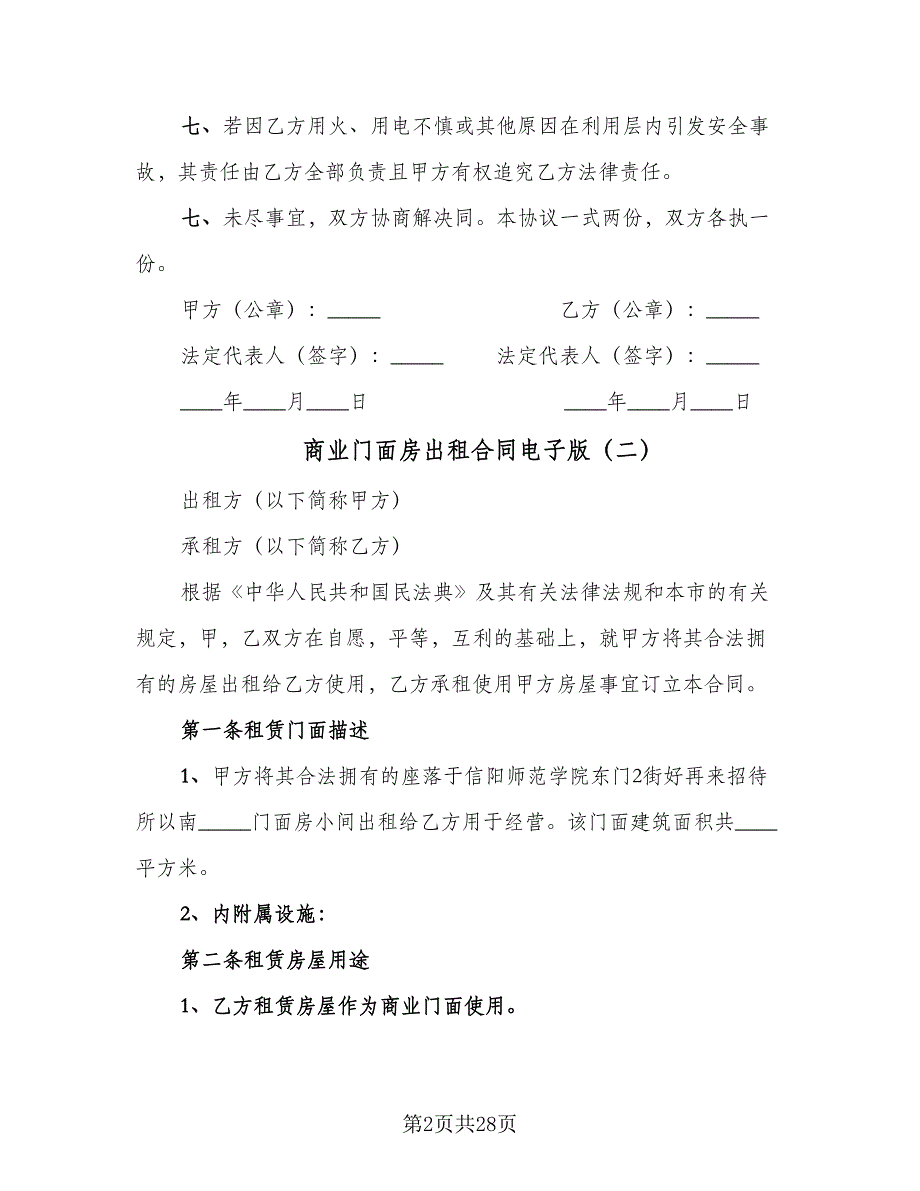 七、若因乙方用火、用电不慎或其他原因在利用层内引发安全事
故，其责任由乙方全部负责且甲方有权追究乙方法律责任。
七、未尽事宜，双方协商解决同。本协议一式两份，双方各执一
份。
甲方（公章）：_____ 乙方（公章）：_____
法定代表人（签字）：_____ 法定代表人（签字）：_____
____年____月____日 ____年____月____日
商业门面房出租合同电子版（二）
出租方（以下简称甲方）
承租方（以下简称乙方）
根据《中华人民共和国民法典》及其有关法律法规和本市的有关
规定，甲，乙双方在自愿，平等，互利的基础上，就甲方将其合法拥
有的房屋出租给乙方使用，乙方承租使用甲方房屋事宜订立本合同。
第一条租赁门面描述
1、甲方将其合法拥有的座落于信阳师范学院东门2街好再来招待
所以南_____门面房小间出租给乙方用于经营。该门面建筑面积共____
平方米。
2、内附属设施：
第二条租赁房屋用途
1、乙方租赁房屋作为商业门面使用。
第2页共28页